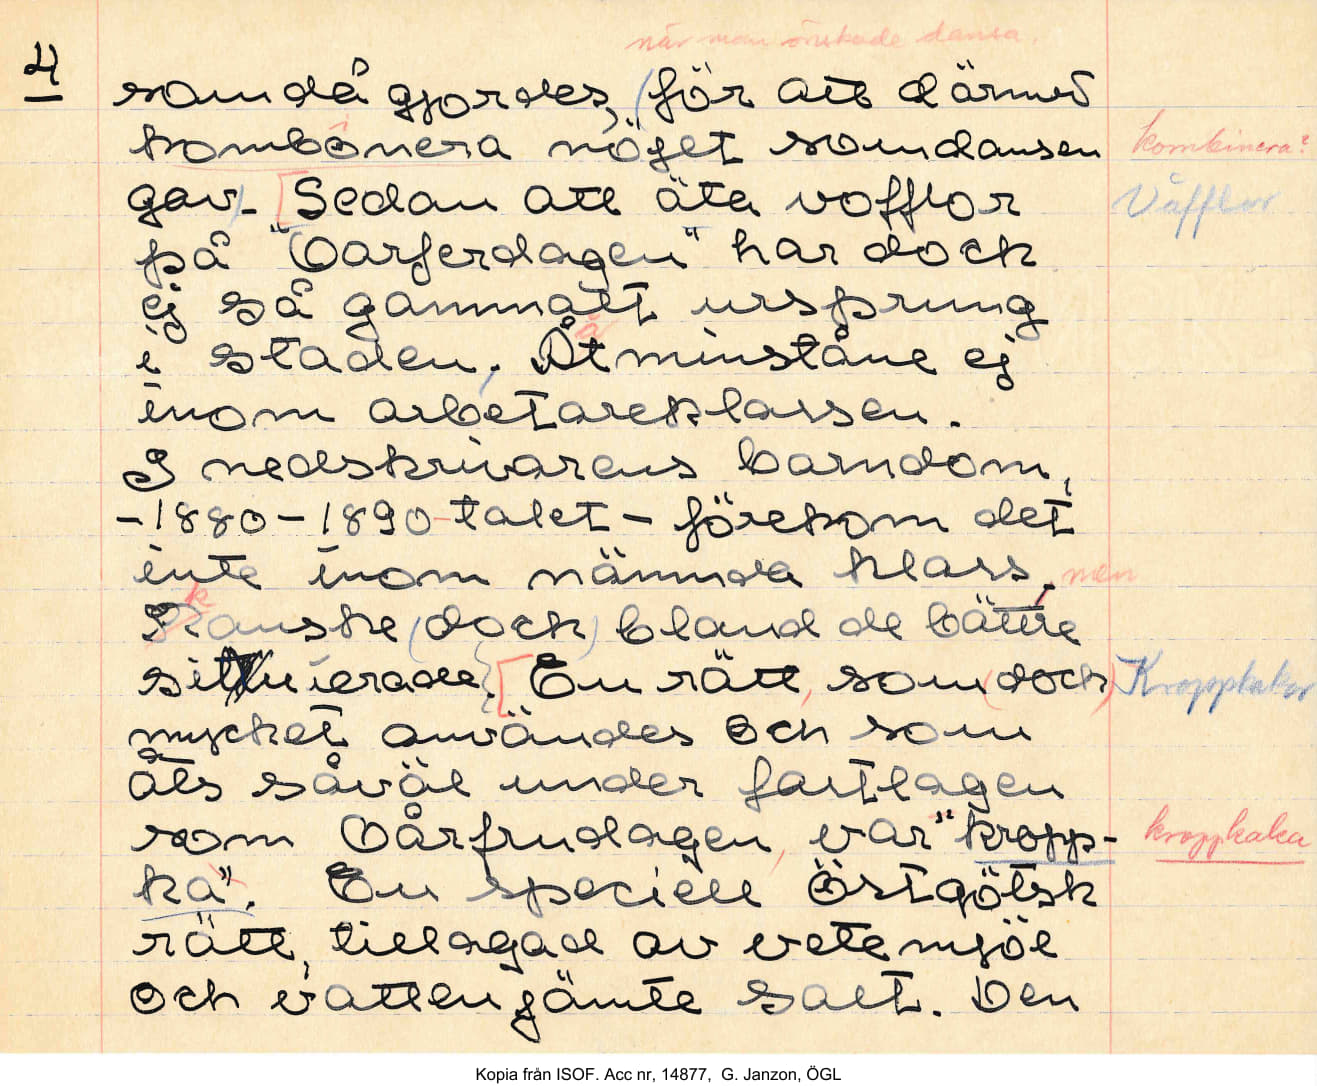 när man önskade dansa.
4
som då gjordes, (för att därmed
kombönera nöjet som dansen i kombinera?
gav). [Sedan att äta vofflor Våfflor
på "Vorferdagen" har dock
ej så gammalt ursprung
i staden. Åtminståne ej å
inom arbetareklassen.
I nedskrivarens barndom,
-1880-1890-talet- förekom det
inte inom nämnda klass, men
Kanske (dock) bland de bättre k
sittuierade. [En rätt, som (doch) Kroppkakor
mycket användes och som
åts såväl under fastlagen
som Vårfrudagen, var "kropp- kroppkaka
ka". En speciell Östgötsk
rätt, tillagad av vetemjöl
och vatten jämte salt. Den
Kopia från ISOF. Acc nr, 14877, G. Janzon, ÖGL